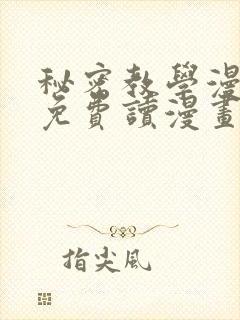 秘密教學漫
免費讀漫畫
指尖風